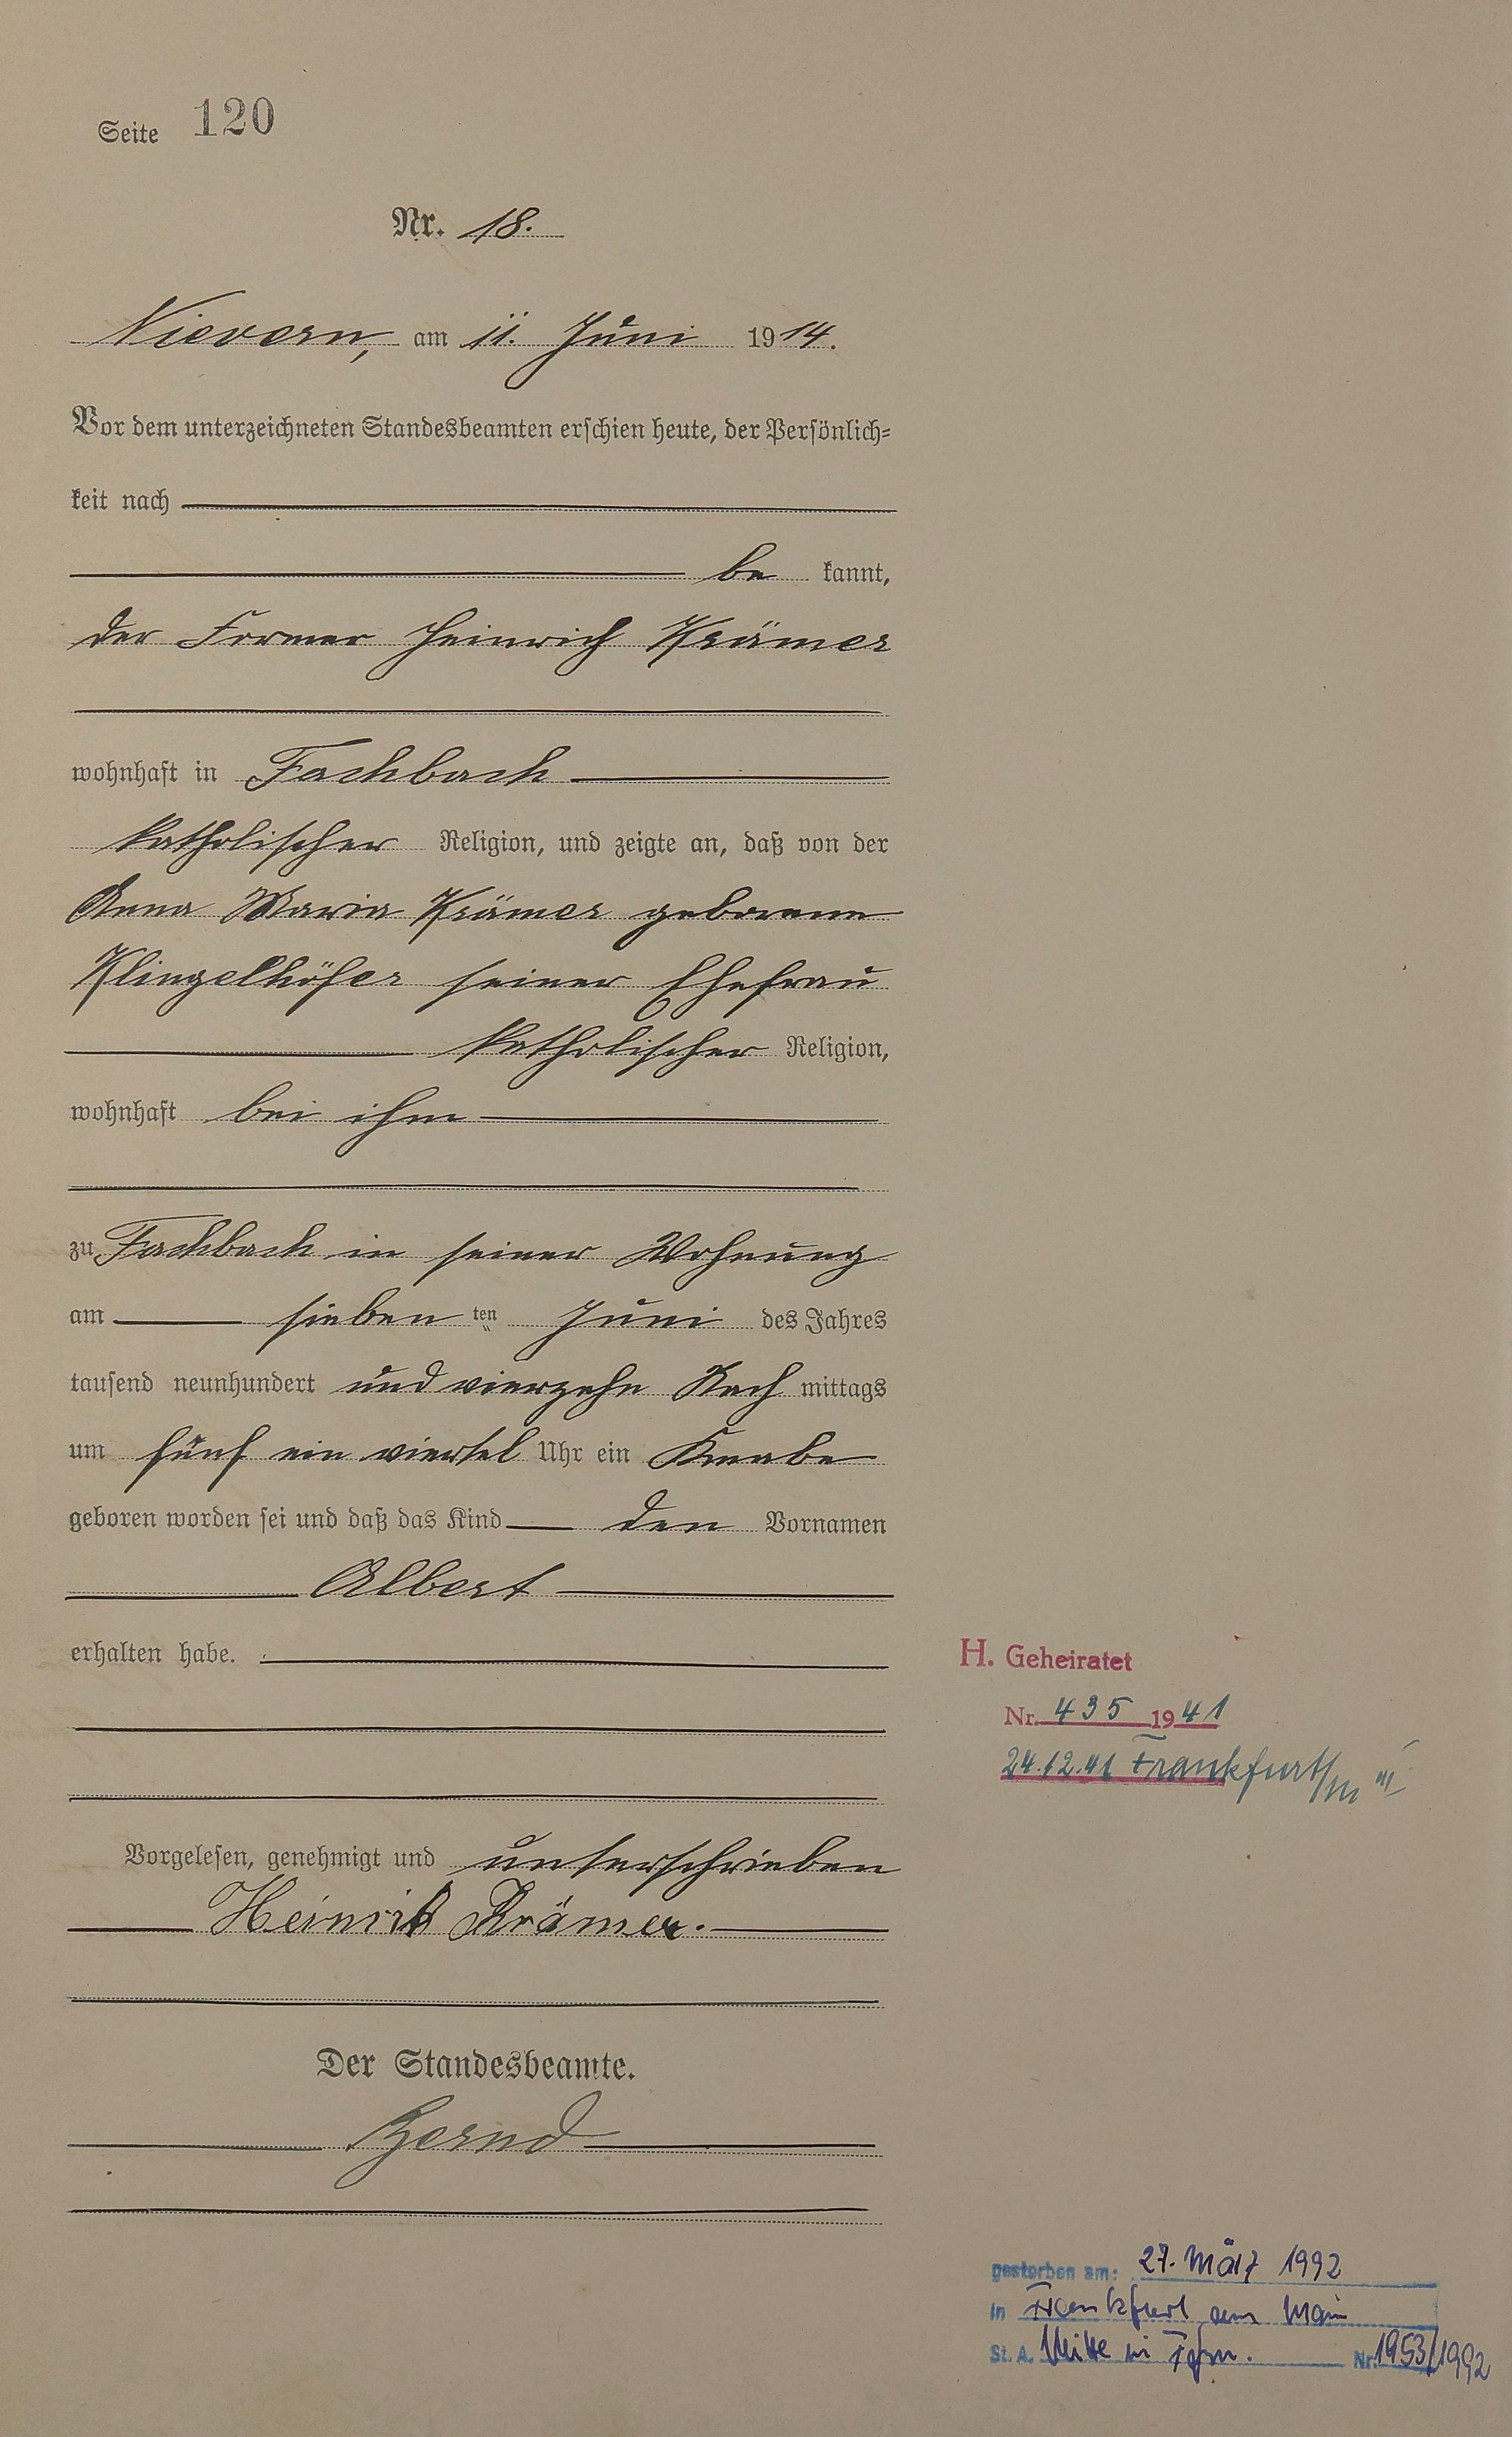 Seite 120
Nr. 18.
Nievern, am 11. Juni 1914.
Vor dem unterzeichneten Standesbeamten erschien heute, der Persönlich-
keit nach
be kannt,
der Former Heinrich Krämer
wohnhaft in Fachbach
katholischer Religion, und zeigte an, daß von der
Anna Maria Krämer geborene
Klingelhöfer seiner Ehefrau
katholischer Religion,
wohnhaft bei ihm
zu Fachbach in seiner Wohnung
am sieben ten Juni des Jahres
tausend neunhundert und vierzehn Nach mittags
um fünf ein viertel Uhr ein Knabe
geboren worden sei und daß das Kind den Vornamen
Albert
erhalten habe.
H. Geheiratet
Nr. 435 1941
24.12.41 Frankfurt/M III
Vorgelesen, genehmigt und unterschrieben
Heinrich Krämer.
Der Standesbeamte.
gestorben am: 27. März 1992
in Frankfurt am Main
St. A. Mitte in Ffm. Nr. 1953/1992